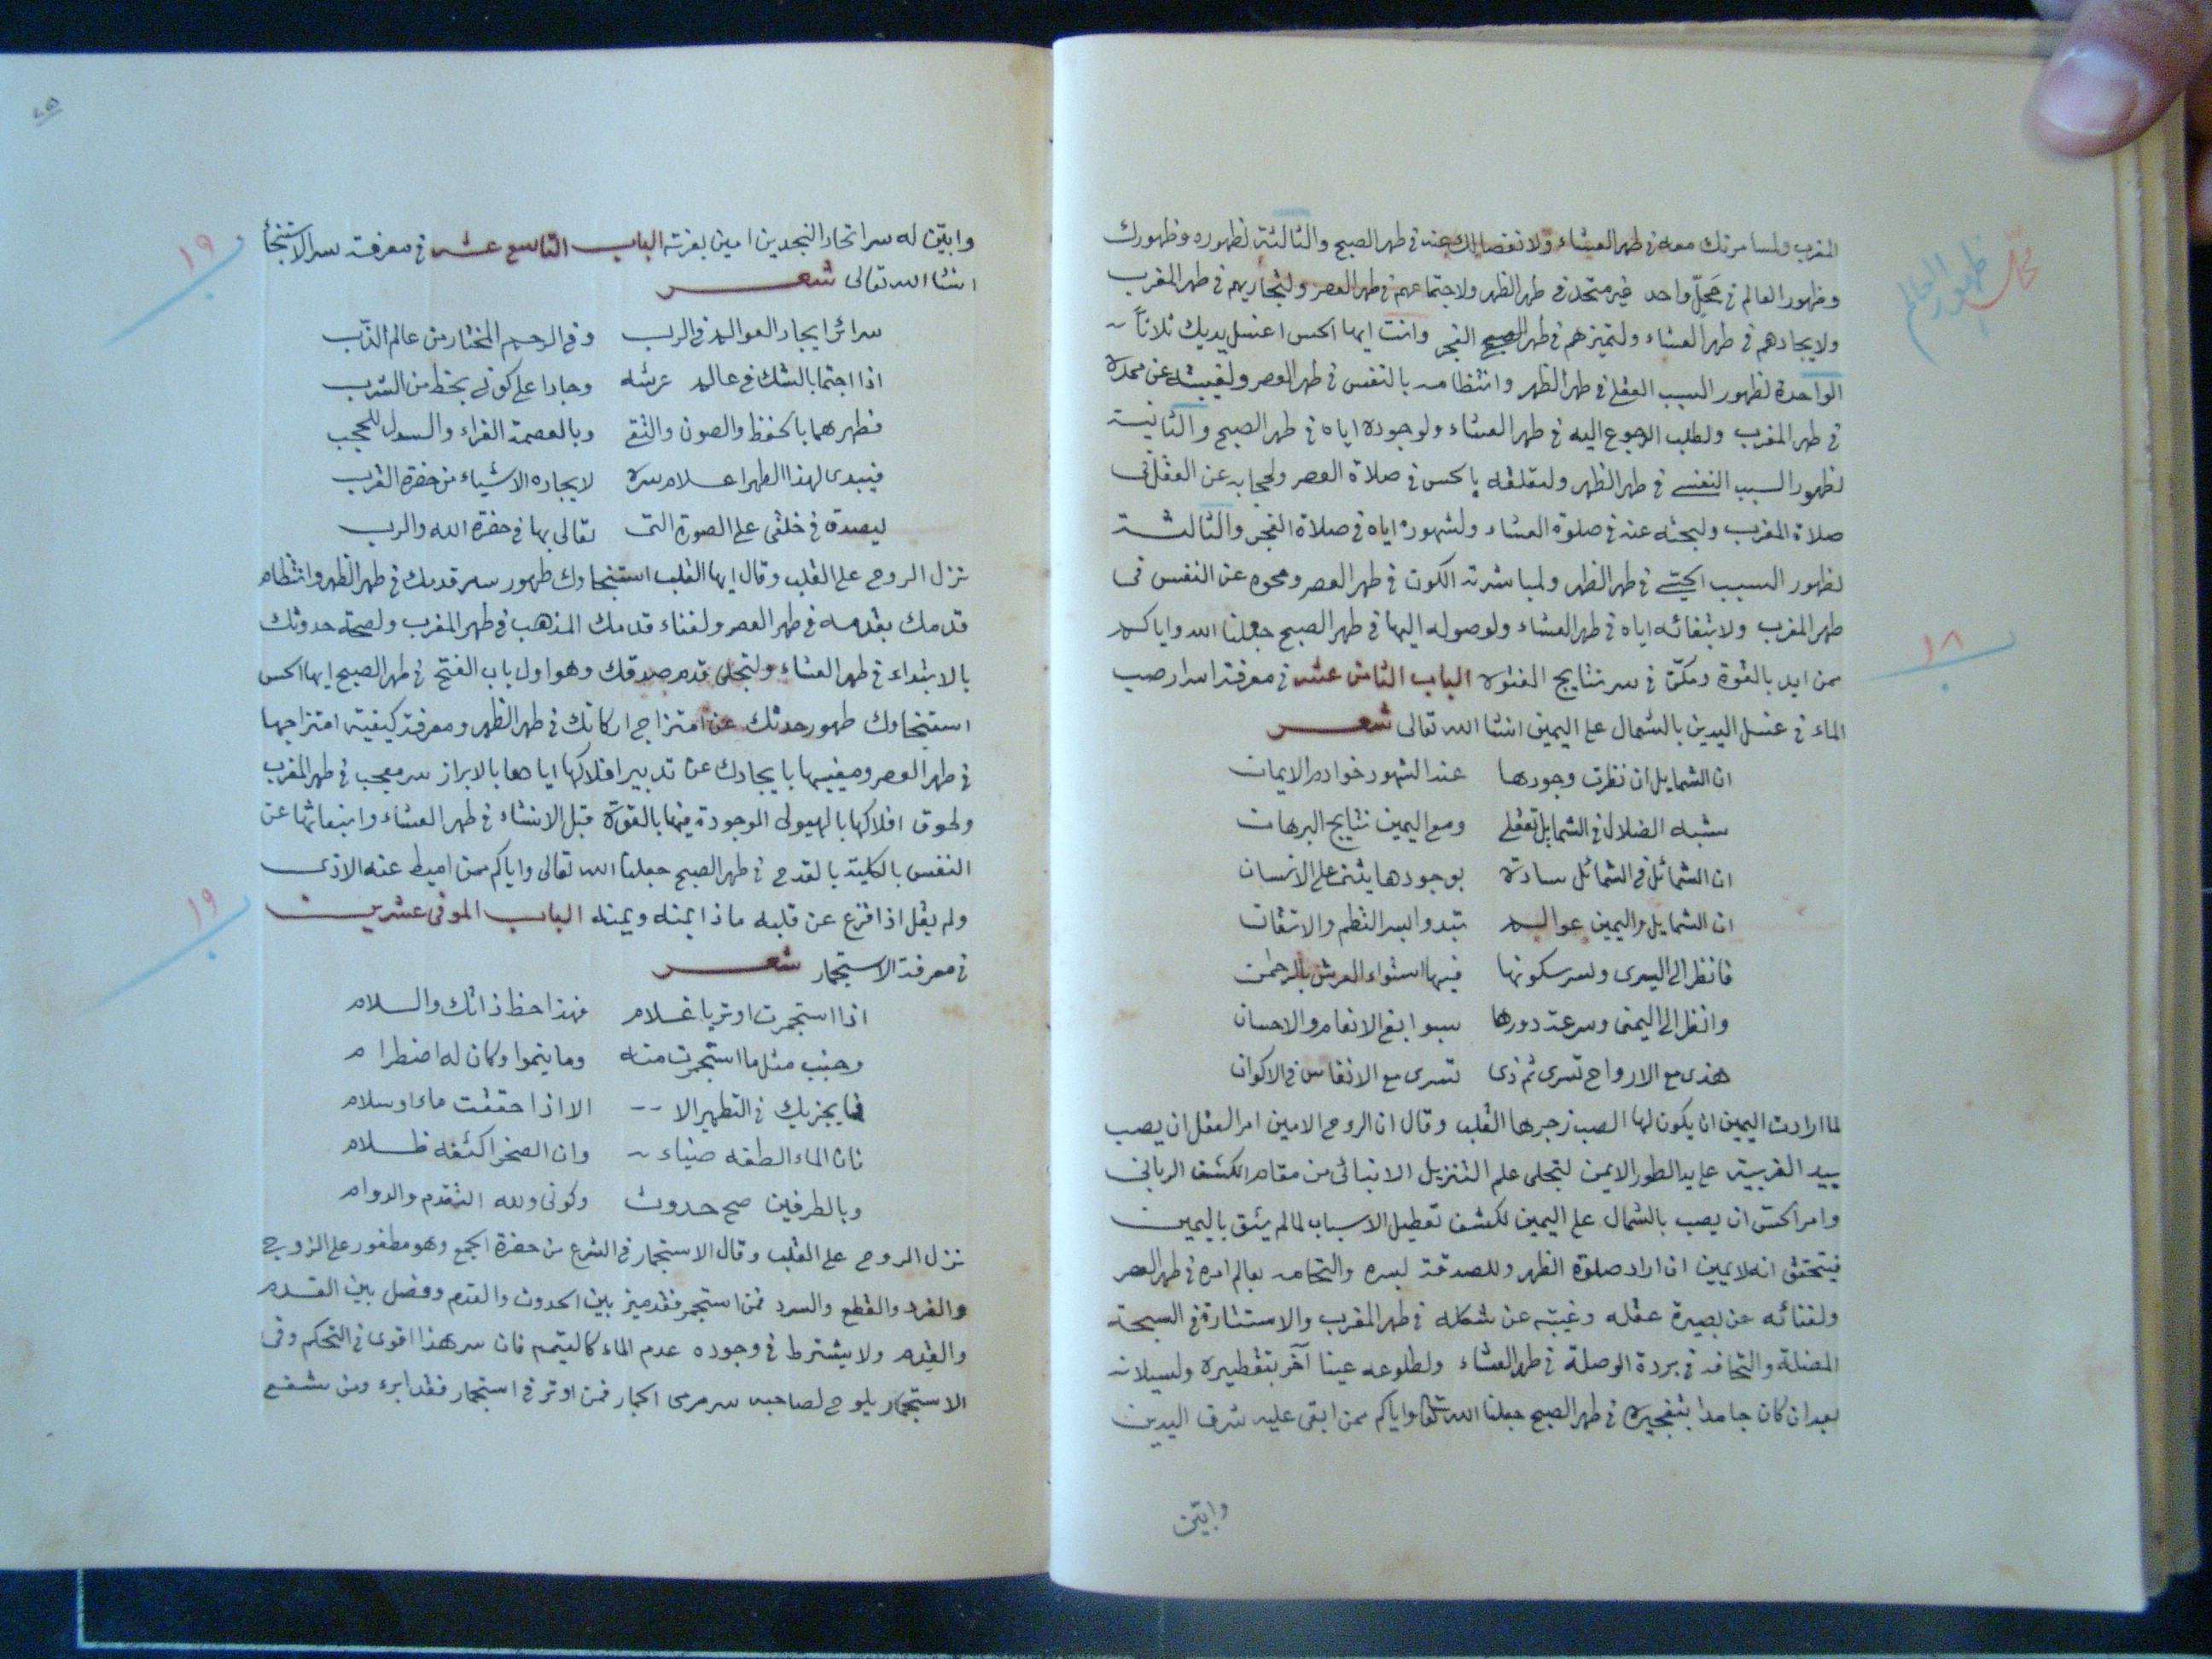 المغرب ولمسامرتك معه في طهر العشاء ولانفصالك عنه في طهر الصبح والثالثة لظهوره وظهورك
وظهور العالم في محلّ واحد غير متحد في طهر الظهر ولاجتماعهم في طهر العصر ولتجاريهم في طهر المغرب
ولايجادهم في طهر العشاء ولتميزهم في طهر الصبح الفجر وانت ايها الحس اغسل يديك ثلاثاً
الواحدة لظهور السبب العقلي في طهر الظهر وانتظامه بالنفس في طهر العصر ولغيبته عن
في طهر المغرب ولطلب الرجوع اليه في طهر العشاء ولوجوده اياه في طهر الصبح والثانية
لظهور السبب النفسي في طهر الظهر ولتعلقه بالحس في صلاة العصر ولحجابه عن العقل في
صلاة المغرب ولبحثه عنه في صلوة العشاء ولشهوده اياه في صلاة الفجر والثالثة
لظهور السبب الحسّي في طهر الظهر ولمباشرته الكون في طهر العصر ومحوه عن النفس في
طهر المغرب ولابتغائه اياه في طهر العشاء ولوصوله اليها في طهر الصبح جعلنا الله واياكم
ممن ايد بالقوة ومكّن في سر نتايج الفتوة الباب الثامن عشر في معرفة اسرار صب
الماء في غسل اليدين بالشمال على اليمين انشا الله تعالى شعر
ان الشمايل ان نظرت وجودها عند الشهود خوادم الايمان
سشبه الضلال في الشمايل تعقلي ومع اليمين نتايج البرهان
ان الشمائل في الشمائل سادة بوجودها يثنى على الانسان
ان الشمايل واليمين عوالم تبدو السر النظم والاتقان
فانظر الى اليسرى وسر سكونها فيها استواء العرش بالرحمن
وانظر الى اليمنى وسرعة دورها سوابغ الانعام والاحسان
هذى مع الارواح تسرى ثم ذى تسرى مع الانفاس في الاكوان
لما ارادت اليمين ان يكون لها الصب زجرها القلب وقال ان الروح الامين امر العقل ان يصب
بيد الغربية على يد الطور الايمن لتجلى علم التنزيل الانبائى من مقام الكشف الرباني
وامر الحسّ ان يصب بالشمال على اليمين لكشف تعطيل الاسباب لما لم يثق باليمين
فيتحقق انه لايمين ان اراد صلوة الظهر وللصدقة لسره والتحامه بعالم امره في طهر العصر
ولفنائه عن بصيرة عقله وغيبته عن شكله في طهر المغرب والاستنارة في السبحة
المضلة والتحافه في بردة الوصلة في طهر العشاء ولطلوعه عينا آخر بتقطيره ولسيلانه
بعد ان كان جامدا بتفجيره في طهر الصبح جعلنا الله تعالى واياكم ممن ابقى عليه شرف اليدين
وابيّن
محلّ
ظهور العالم
١٨
وابيّن له سر اتحاد النجدين امين بعزته الباب التاسع عشر في معرفة سر الاستنجأ
انشا الله تعالى شعر
سرائر ايجاد العوالم في الرب وفي الرحم المختار من عالم الترّب
اذا اجتمعا بالشك في عالم عرشه وجادا على كوني بحظ من الشرب
فطهرهما بالحفظ والصون والتقى وبالعصمة الغراء والسدل للحجب
فيبدى لهذا الطهر اعلام سره لايجاده الاشياء من حضرة القرب
ليصدق في خلقى على الصورة التى تعالى بها في حضرة الله والرب
نزل الروح على القلب وقال ايها القلب استنجاوك طهور سر قدمك في طهر الظهر وانتظام
قدمك بقدمه في طهر العصر ولفناء قدمك المذهب في طهر المغرب ولصحة حدوثك
بالابتداء في طهر العشاء ولتجلى قدم صدقك وهو اول باب الفتح في طهر الصبح ايها الحس
استنجاوك طهور حدثك عن امتزاج اركانك في طهر الظهر ومعرفة كيفية امتزاجها
في طهر العصر ومغيبها بايجادك عن تدبير افلاكها اياها بالابراز سر معجب في طهر المغرب
ولحوق افلاكها بالهيولى الموجودة فيها بالقوّة قبل الانشاء في طهر العشاء وانبعاثها عن
النفس بالكلية بالقدح في طهر الصبح جعلنا الله تعالى واياكم ممن اميط عنه الاذى
ولم يقل اذا فزع عن قلبه ماذا يمنه ويمنه الباب الموفى عشرين
في معرفة الاستجمار شعر
اذا استجمرت اوتر يا غلام فهذا حظ ذاتك والسلام
وجنب مثل ما استجمرت منه وما ينموا وكان له اضطرام
فما يجزيك في التطهير الا الا اذا حققت ماء اوسلام
فان الماء الطفه ضياء وان الصخر اكثفه ظلام
وبالطرفين صح حدوث وكونى ولله التقدم والدوام
نزل الروح على القلب وقال الاستجمار في الشرع من حضرة الجمع وهو مطفور على الزوج
والفرد والقطع والسرد فمن استجمر فقد ميز بين الحدوث والقدم وفضل بين القدم
والقِدم ولا يشترط في وجوده عدم الماء كالتيمم فان سر هذا اقوى في التحكم وفى
الاستجمار يلوح لصاحبه سر مرمى الجمار فمن اوتر في استجمار فقد ابرء ومن شفع
١٩
١٩